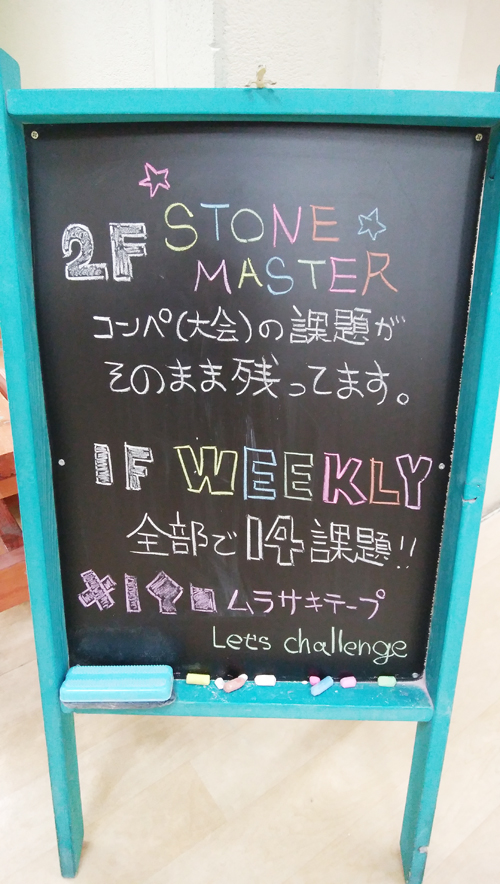 2F STONE
MASTER
コンペ(大会)の課題が
そのまま残ってます。
1F WEEKLY
全部で14課題!!
ムラサキテープ
Let's challenge